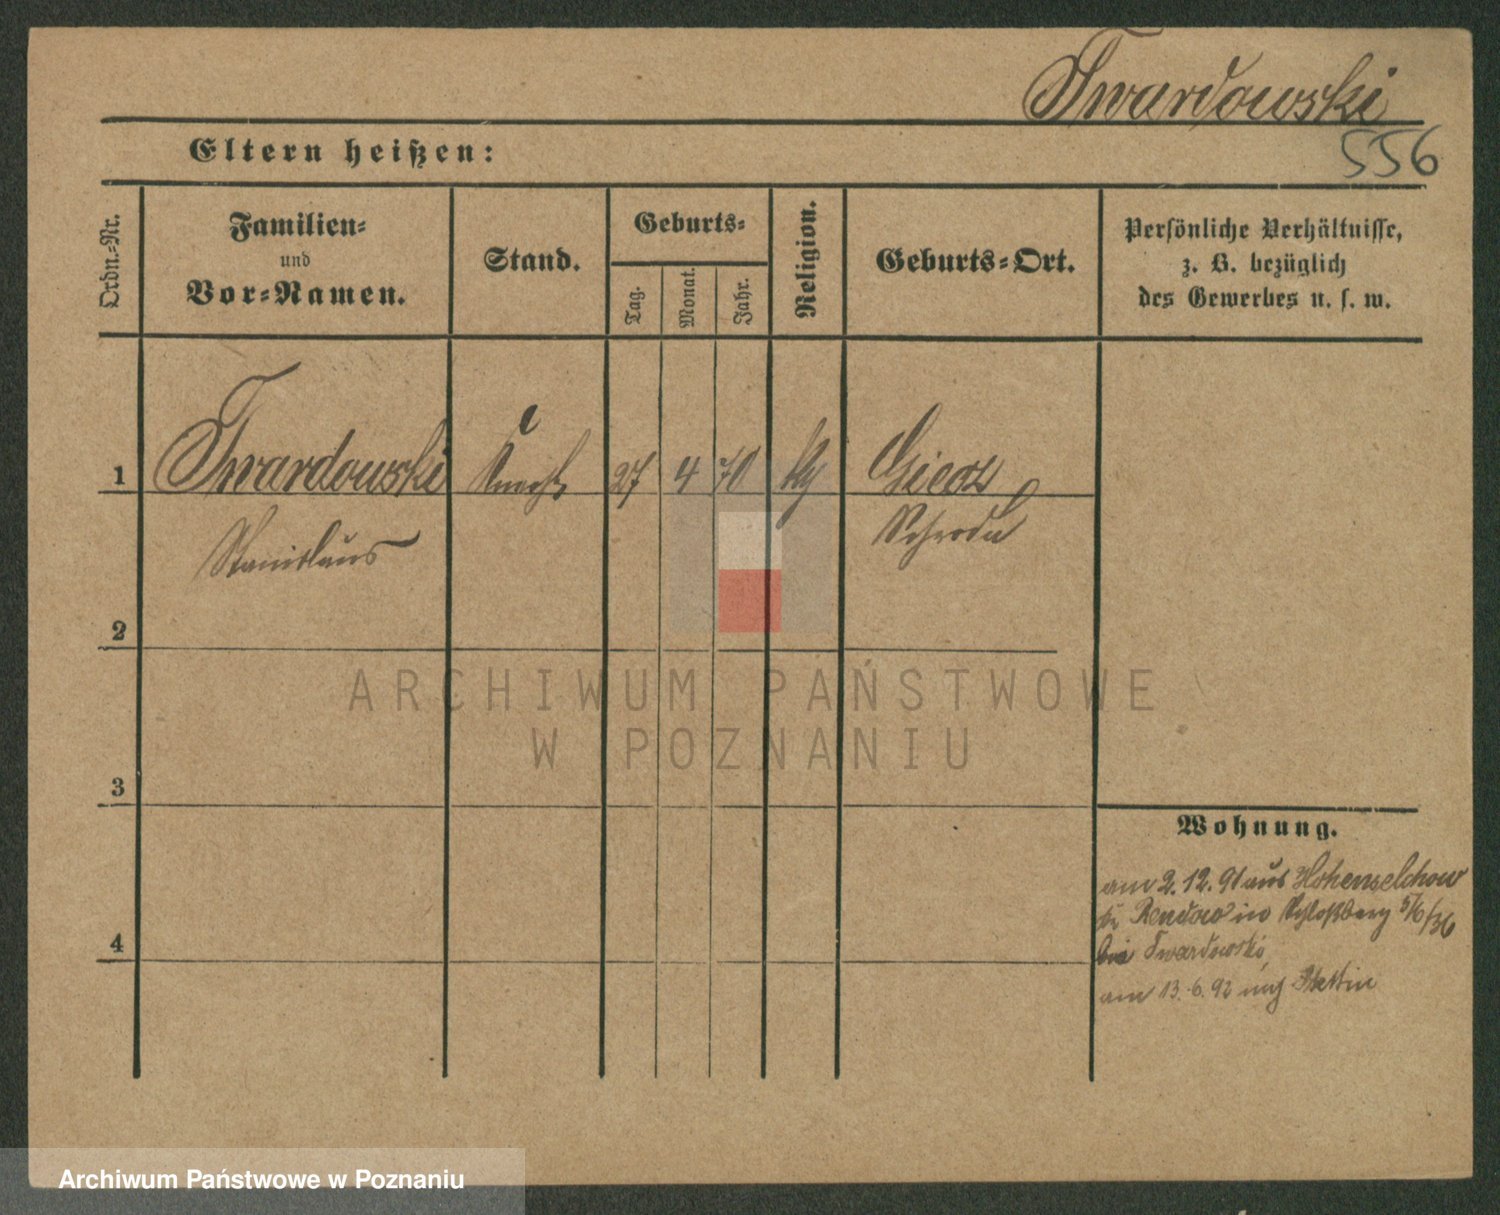 Twardowski
556
Eltern heißen:
Ordn.-Nr.
Familien-
und
Vor-Namen.
Stand.
Geburts-
Tag.
Monat.
Jahr.
Religion.
Geburts-Ort.
Persönliche Verhältnisse,
z. B. bezüglich
des Gewerbes u. s. w.
1 Twardowski Knecht 27 4 70 kg Giecz
Stanislaus Schroda
2
3
4
Wohnung.
am 2.12.91 aus Hohenselchow
in Schloßberg 5/6/36
bei Twardowski,
am 13.6.92 nach Stettin
ARCHIWUM PAŃSTWOWE
W POZNANIU
Archiwum Państwowe w Poznaniu